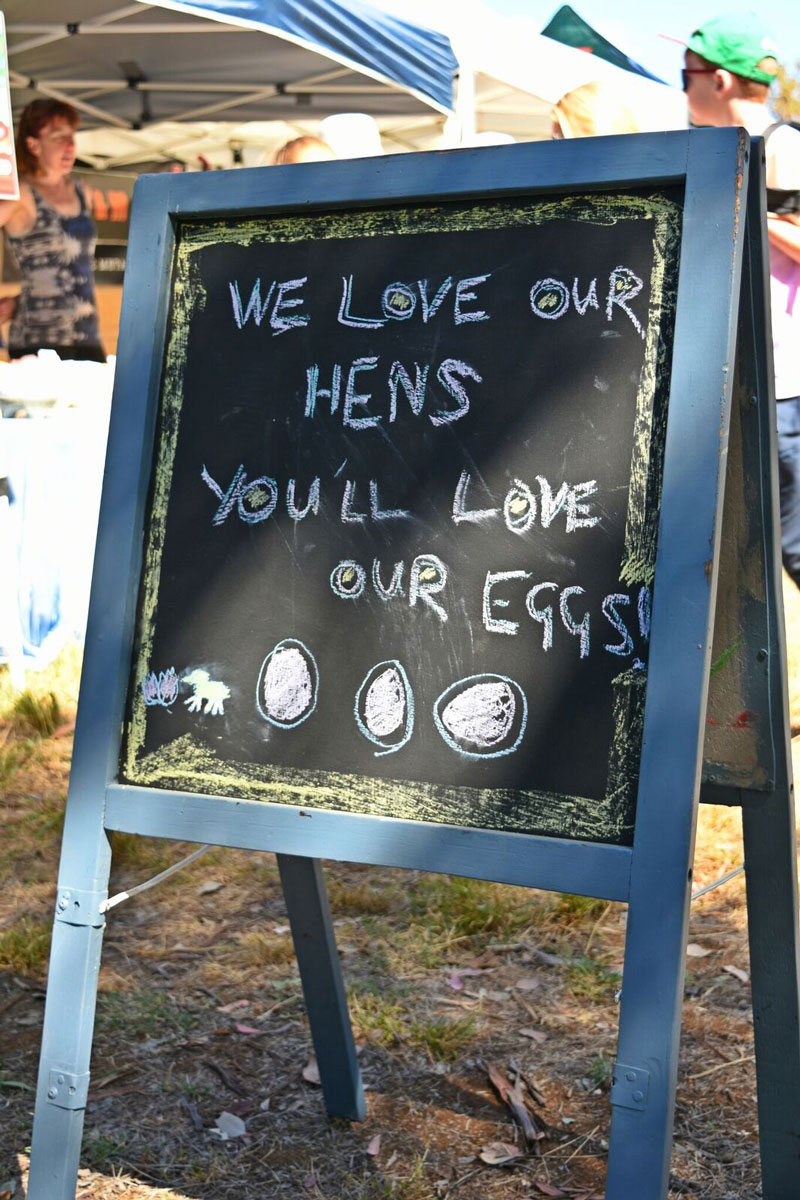 WE LOVE OUR
HENS
YOU'LL LOVE
OUR EGGS!